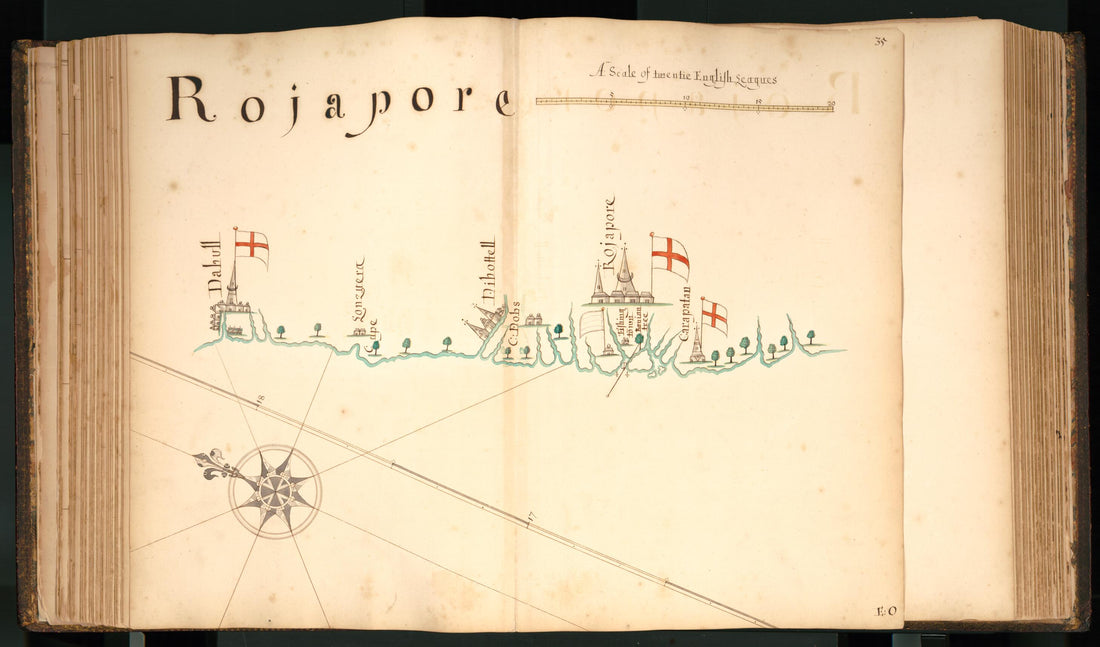 35
Rojapore
A Scale of twentie English Leagues
5 10 15 20
Dabull
Zonzyera
Cape
Dibottell
C: Dobs
Rojapore
fishing
town
Benian
tree
Carapatan
18
17
E: O